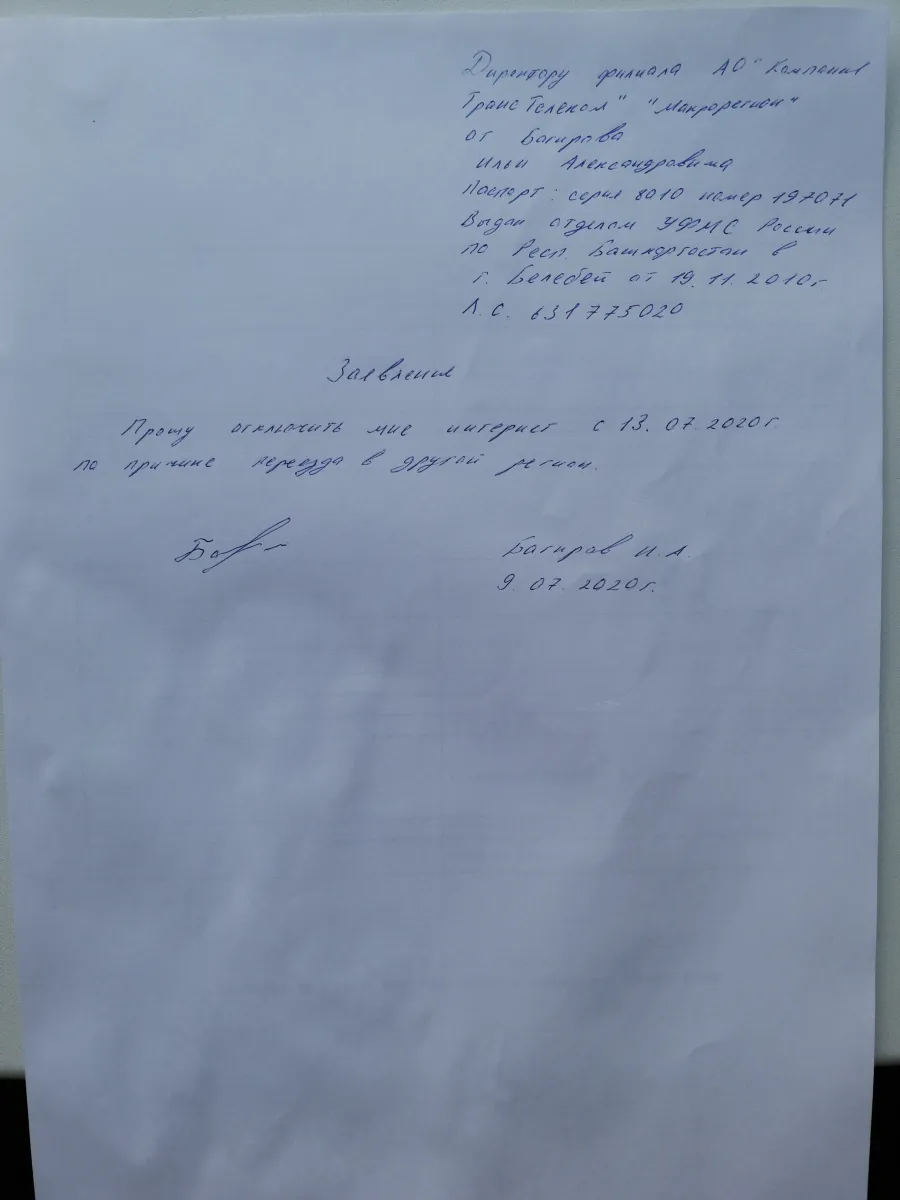 Директору филиала АО "Компания
ТрансТелеком" "Макрорегион"
от Багирова
Ильи Александровича
Паспорт: серия 8010 номер 197071
Выдан отделом УФМС России
по Респ. Башкортостан в
г. Белебей от 19.11.2010г
Л.С. 631775020
Заявление
Прошу отключить мне интернет с 13.07.2020г.
по причине переезда в другой регион.
Баг
Багиров И.А.
9.07.2020г.